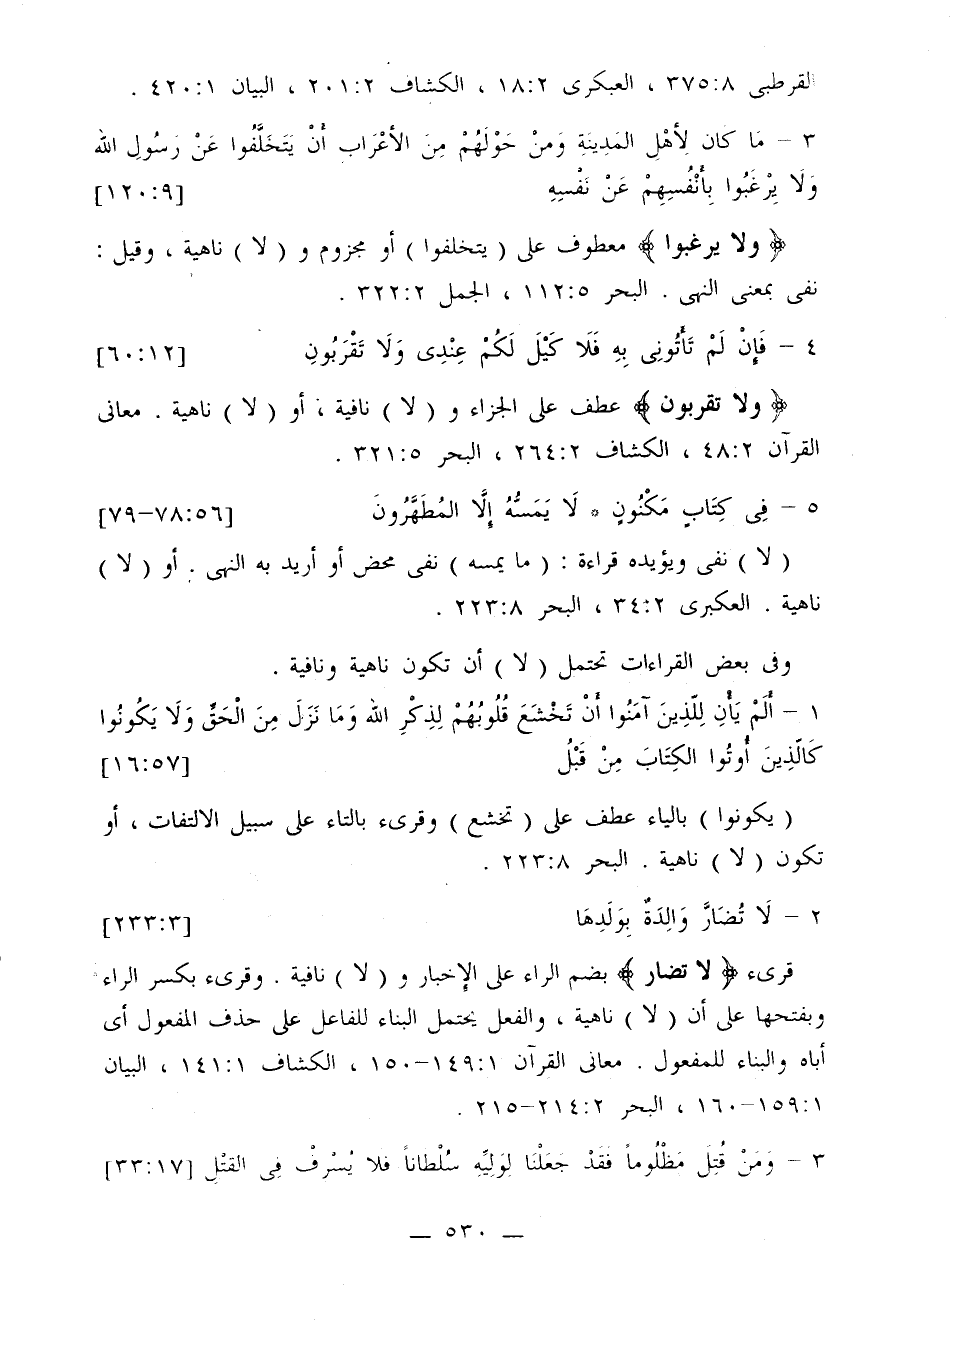 القرطبى ٣٧٥:٨ ، العبكرى ١٨:٢ ، الكشاف ٢٠١:٢ ، البيان ٤٢٠:١ .
٣ – مَا كان لِأهْلِ المَدِينَةِ وَمَنْ حَوْلَهُمْ مِنَ الأعْرَابِ أنْ يَتَخَلَّفُوا عَنْ رَسُولِ الله
وَلَا يرْغَبُوا بِأنْفُسِهِمْ عَنْ نَفْسِهِ [١٢٠:٩]
﴿ ولا يرغبوا ﴾ معطوف على ( يتخلفوا ) أو مجزوم و ( لا ) ناهية ، وقيل :
نفى بمعنى النهى . البحر ١١٢:٥ ، الجمل ٣٢٢:٢ .
٤ – فَإنْ لَمْ تَأتُونِى بِهِ فَلَا كَيْلَ لَكُمْ عِنْدِى وَلَا تَقْرَبُونِ [٦٠:١٢]
﴿ ولا تقربون ﴾ عطف على الجزاء و ( لا ) نافية ، أو ( لا ) ناهية . معانى
القرآن ٤٨:٢ ، الكشاف ٢٦٤:٢ ، البحر ٣٢١:٥ .
٥ – فِى كِتَابٍ مَكْنُونٍ * لَا يَمَسُّهُ إلَّا المُطَهَّرُونَ [٧٨:٥٦–٧٩]
( لا ) نفى ويؤيده قراءة : ( ما يمسه ) نفى محض أو أريد به النهى . أو ( لا )
ناهية . العكبرى ٣٤:٢ ، البحر ٢٢٣:٨ .
وفى بعض القراءات تحتمل ( لا ) أن تكون ناهية ونافية .
١ – ألَمْ يَأْنِ لِلَّذِينَ آمَنُوا أنْ تَخْشَعَ قُلُوبُهُمْ لِذِكْرِ الله وَمَا نَزَلَ مِنَ الْحَقِّ وَلَا يَكُونُوا
كَالَّذِينَ أوتُوا الكِتَابَ مِنْ قَبْلُ [١٦:٥٧]
( يكونوا ) بالياء عطف على ( تخشع ) وقرىء بالتاء على سبيل الالتفات ، أو
تكون ( لا ) ناهية . البحر ٢٢٣:٨ .
٢ – لَا تُضَارَّ وَالِدَةٌ بِوَلَدِهَا [٢٣٣:٣]
قرىء ﴿ لا تضار ﴾ بضم الراء على الإخبار و ( لا ) نافية . وقرىء بكسر الراء
وبفتحها على أن ( لا ) ناهية ، والفعل يحتمل البناء للفاعل على حذف المفعول أى
أباه والبناء للمفعول . معانى القرآن ١٤٩:١–١٥٠ ، الكشاف ١٤١:١ ، البيان
١٥٩:١–١٦٠ ، البحر ٢١٤:٢–٢١٥ .
٣ – وَمَنْ قُتِلَ مَظْلُوماً فَقَدْ جَعَلْنَا لِوَلِيِّهِ سُلْطَاناً فلا يُسْرِفْ فِى القَتْلِ [٣٣:١٧]
— ٥٣٠ —